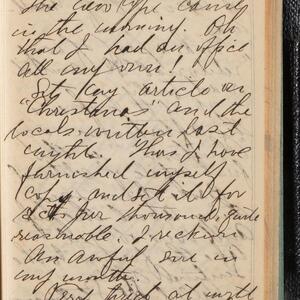 The new type came
in the morning. Oh
that I had an office
all my own!
Set my article on
"Christmas" and the
locals written last
night. Thus I have
furnished myself
copy and set it for
8 cts per thousand, quite
reasonable, I reckon.
An awful sore in
my mouth.
Very tired at night